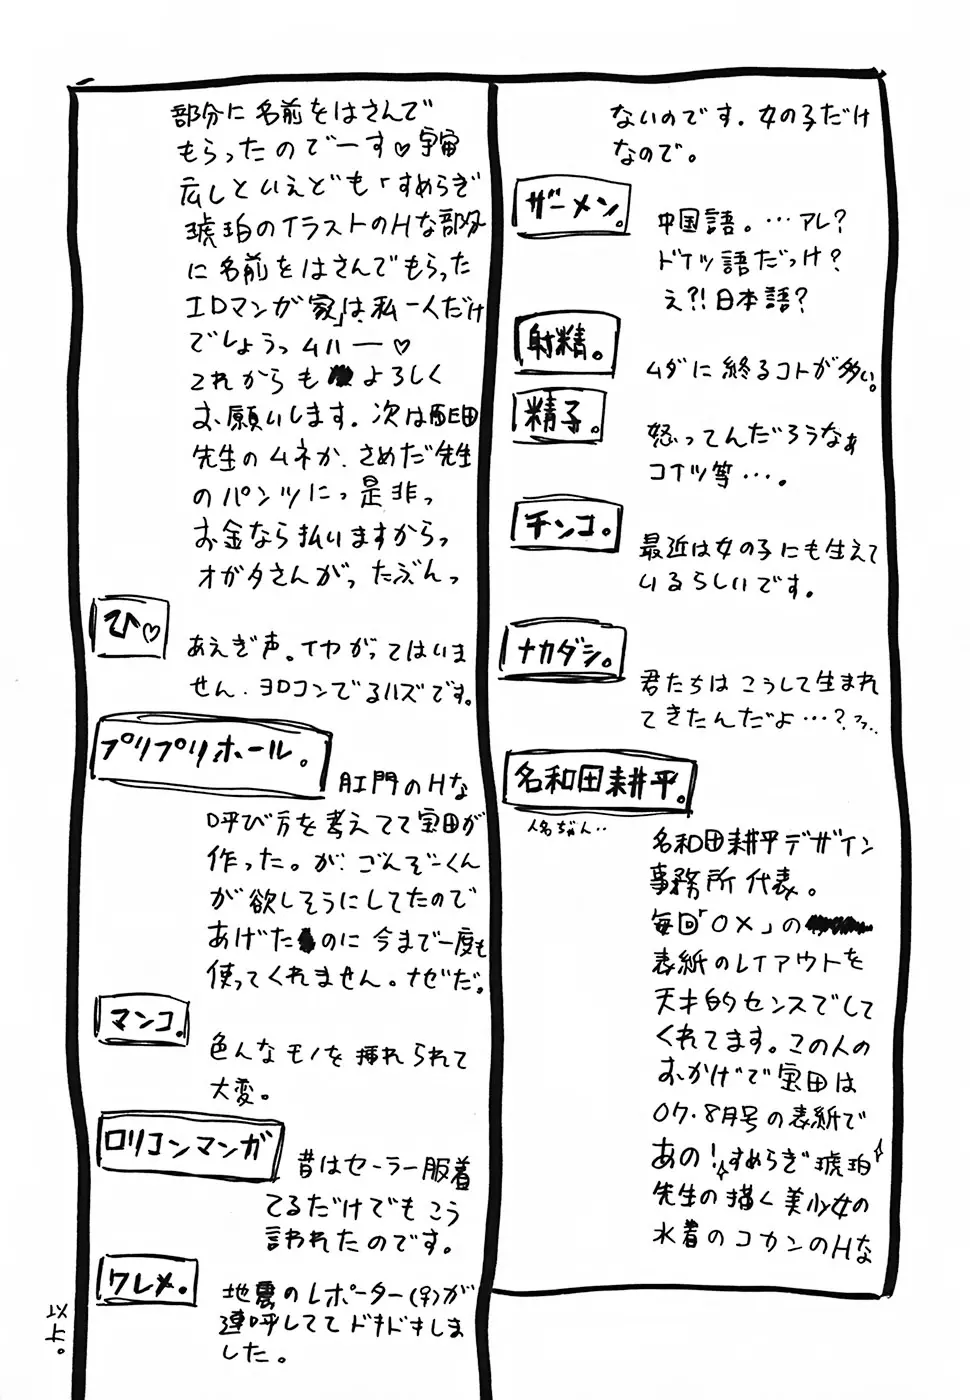 ないのです。女の子だけ
なので。
ザーメン。
中国語。…アレ?
ドイツ語だっけ?
え?!日本語?
射精。
ムダに終るコトが多い。
精子。
怒ってんだろうなぁ
コイツ等…。
チンコ。
最近は女の子にも生えて
いるらしいです。
ナカダシ。
君たちはこうして生まれ
てきたんだよ…?
名和田耕平。
名和田耕平デザイン
事務所代表。
毎回「OX」の
表紙のレイアウトを
天才的センスでして
くれてます。この人の
おかげで宝田は
07.8月号の表紙で
あの!すめらぎ琥珀
先生の描く美少女の
水着のコカンのHな
部分に名前をはさんで
もらったのでーす♡宇宙
広しといえども「すめらぎ
琥珀のイラストのHな部分
に名前をはさんでもらった
エロマンガ家」は、私一人だけ
でしょうっムハー♡
これからもよろしく
お願いします。次は
先生のムネか、さめだ先生
のパンツにっ是非っ
お金なら払いますからっ
オガタさんがったぶんっ
ひ♡
あえぎ声。イヤがってはいま
せん。ヨロコンでるハズです。
プリプリホール。
肛門のHな
呼び方を考えてて宝田が
作った。が、ごんぞーくん
が欲しそうにしてたので
あげたのに今まで一度も
使ってくれません。ナゼだ。
マンコ。
色んなモノを挿れられて
大変。
ロリコンマンガ
昔はセーラー服着
てるだけでもこう
言われたのです。
ワレメ。
地震のレポーター(♀)が
連呼しててドキドキしま
した。